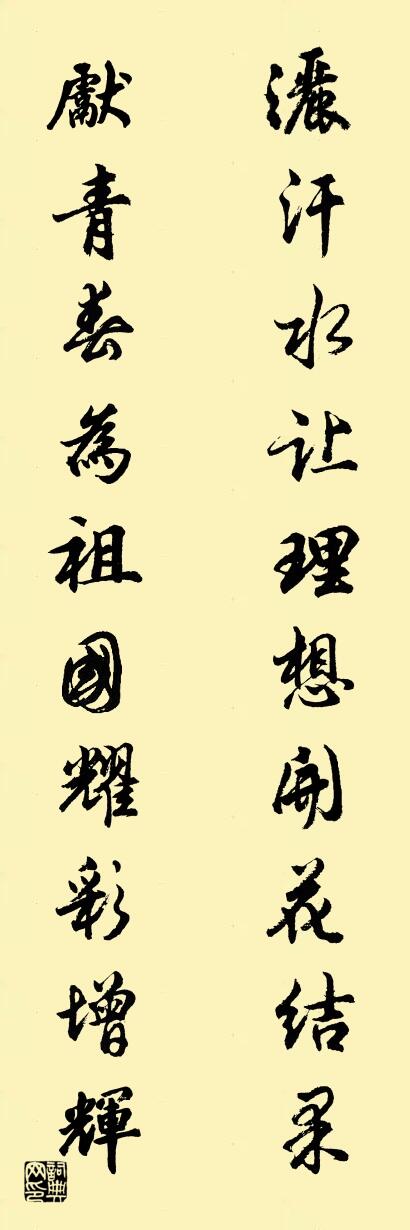 灑汗水让理想開花结果
獻青春為祖國耀彩增輝
詞典网印